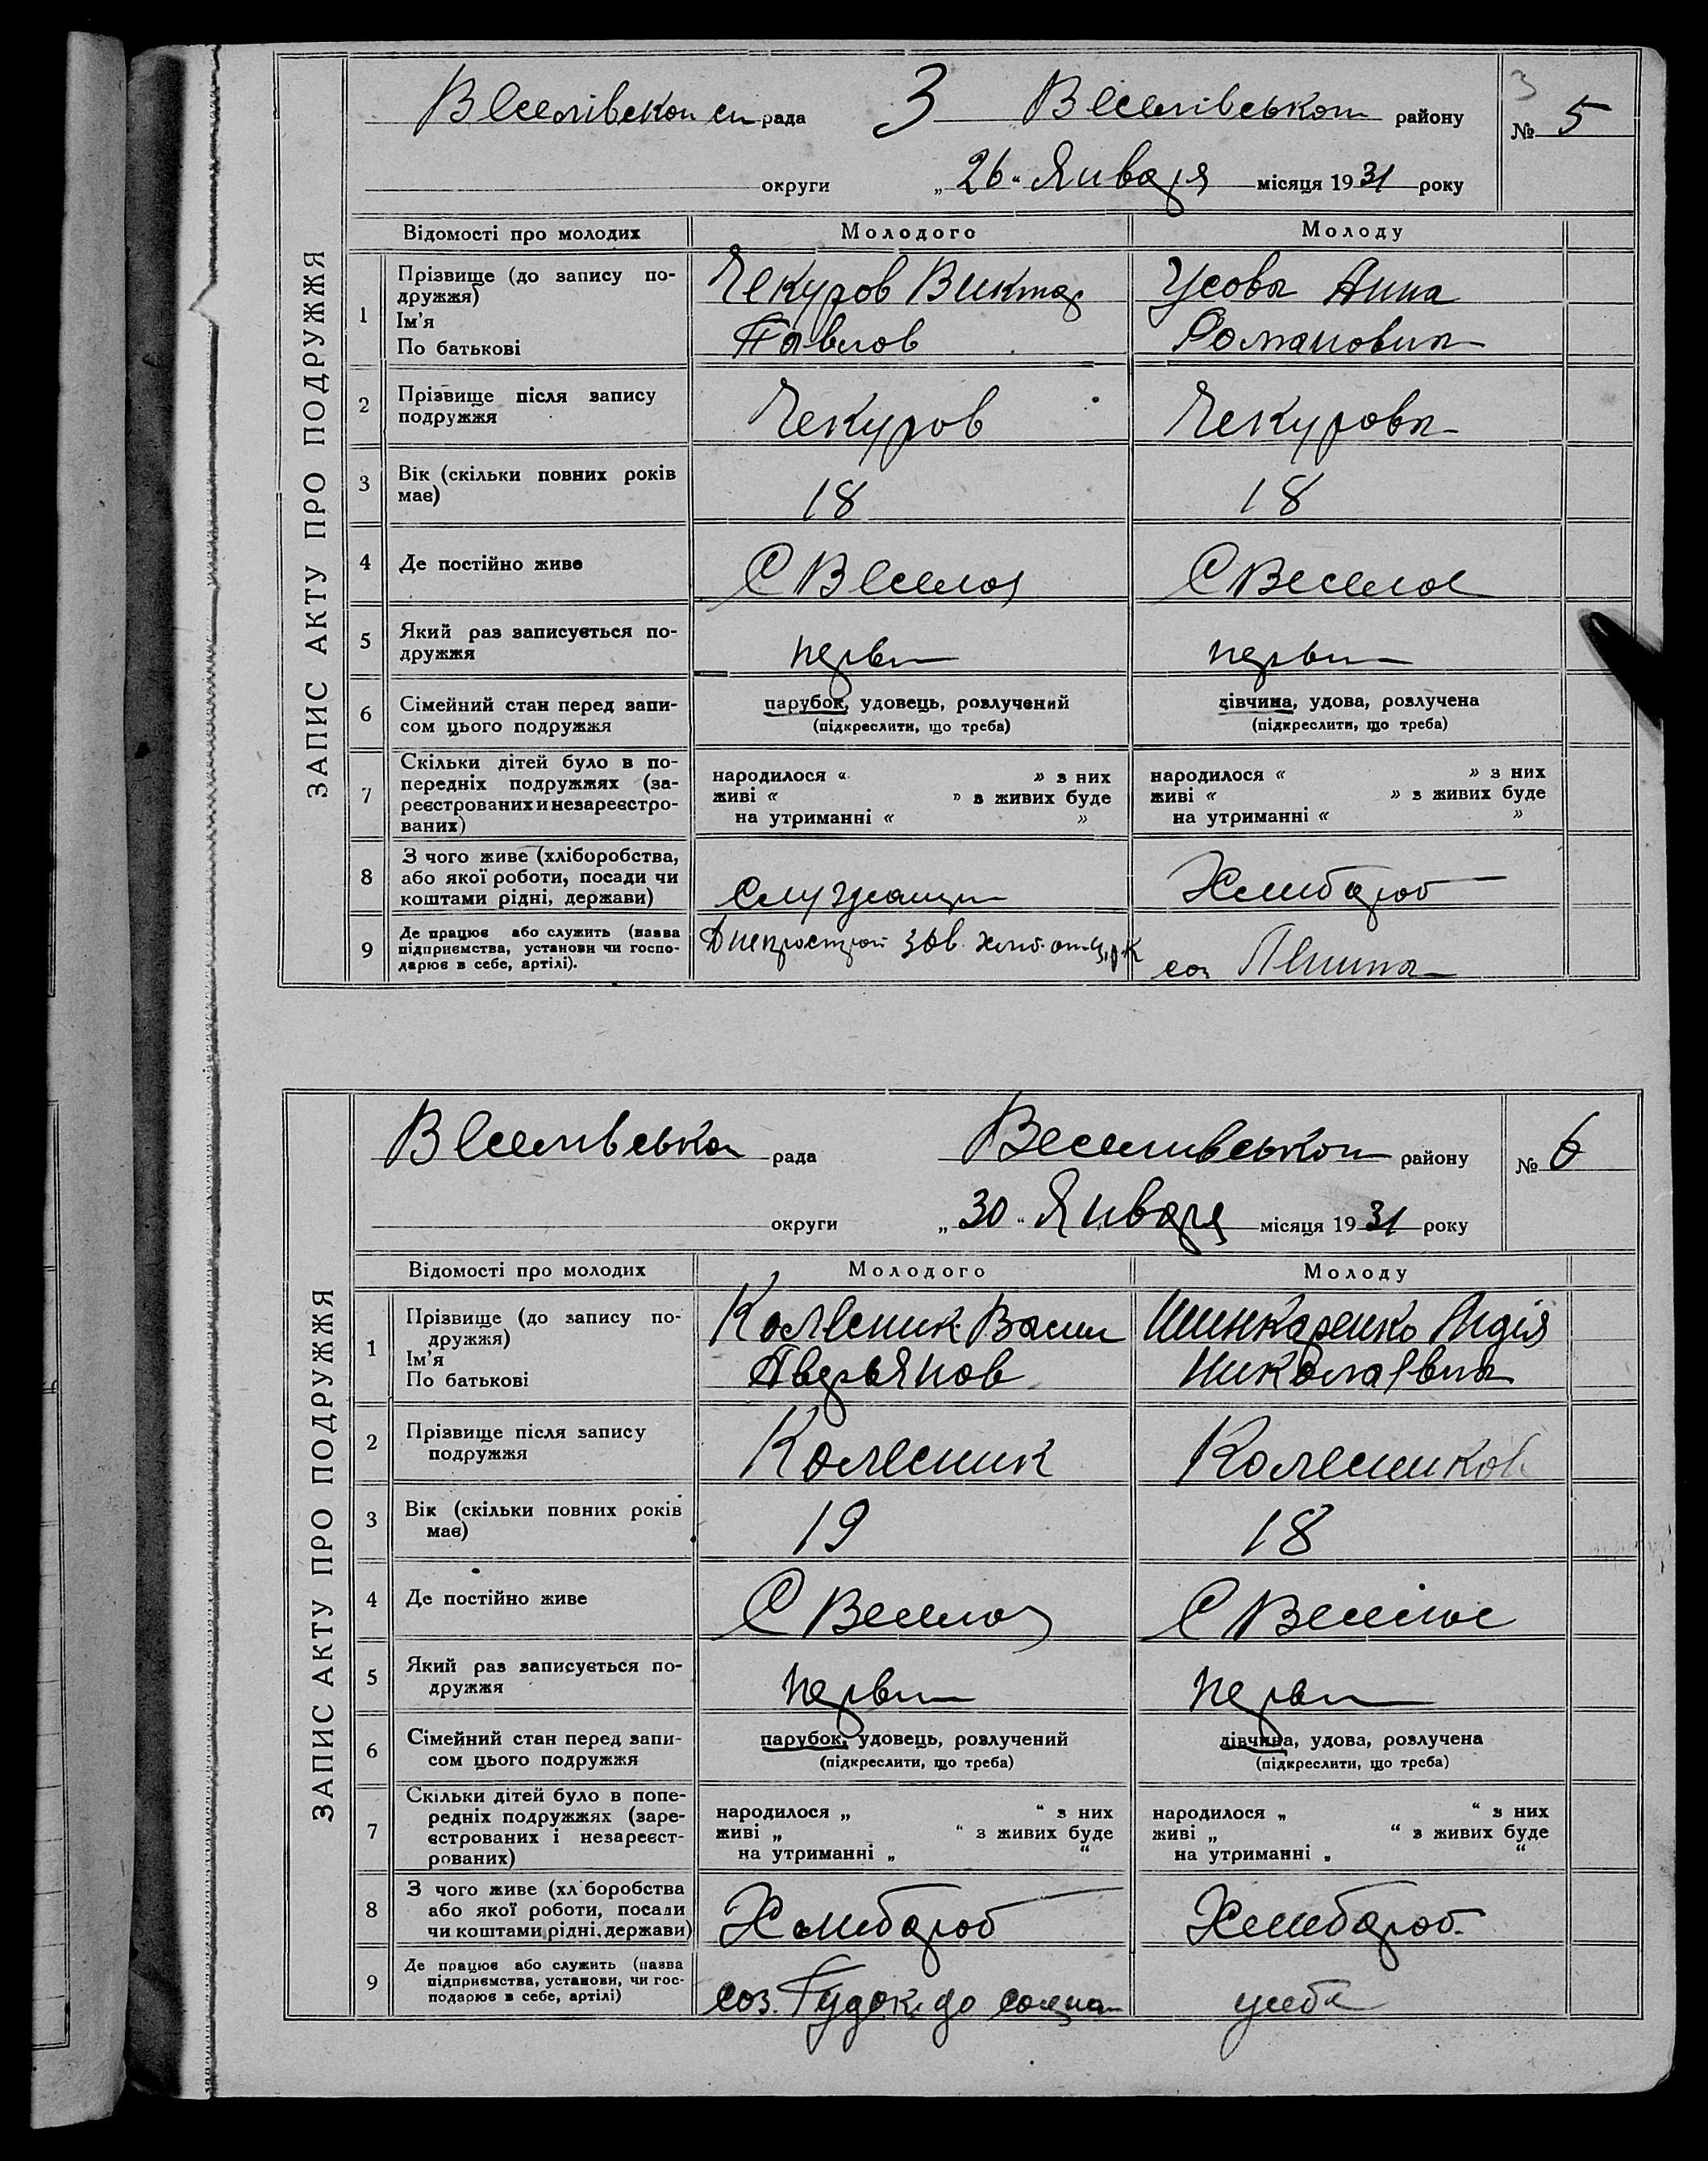 ЗАПИС АКТУ ПРО ПОДРУЖЖЯ
Веселівскои си рада 3 Веселівськои району
3
№ 5
округи „26“ Января місяця 1931 року
Відомості про молодих Молодого Молоду
1 Прізвище (до запису по-
дружжя)
Ім'я
По батькові
Чекуров Виктор
Павлов
Усова Анна
Романовна
2 Прізвище після запису
подружжя
Чекуров Чекурова
3 Вік (скільки повних років
має)
18 18
4 Де постійно живе С Веселое С Веселое
5 Який раз записується по-
дружжя
перви перви
6 Сімейний стан перед запи-
сом цього подружжя
парубок, удовець, розлучений
(підкреслити, що треба)
дівчина, удова, розлучена
(підкреслити, що треба)
7 Скільки дітей було в по-
передніх подружжях (за-
реєстрованих и незареєстро-
ваних)
народилося « » з них
живі « » з живих буде
на утриманні « »
народилося « » з них
живі « » з живих буде
на утриманні « »
8 З чого живе (хліборобства,
або якої роботи, посади чи
коштами рідні, держави)
Служащи Хлибороб
9 Де працює або служить (назва
підприємства, установи чи госпо-
дарює в себе, артілі).
Днепрострой зав.
соз Ленина
ЗАПИС АКТУ ПРО ПОДРУЖЖЯ
Веселівська рада Веселивськои району
№ 6
округи „30“ Января місяця 1931 року
Відомості про молодих Молодого Молоду
1 Прізвище (до запису по-
дружжя)
Ім'я
По батькові
Колесник Васил
Аверьянов
Шинкаренко Лидія
Николаевна
2 Прізвище після запису
подружжя
Колесник Колесников
3 Вік (скільки повних років
має)
19 18
4 Де постійно живе С Веселое С Веселое
5 Який раз записується по-
дружжя
перви перви
6 Сімейний стан перед запи-
сом цього подружжя
парубок, удовець, розлучений
(підкреслити, що треба)
дівчина, удова, розлучена
(підкреслити, що треба)
7 Скільки дітей було в попе-
редніх подружжях (заре-
єстрованих і незареєст-
рованих)
народилося „ “ з них
живі „ “ з живих буде
на утриманні „ “
народилося „ “ з них
живі „ “ з живих буде
на утриманні „ “
8 З чого живе (хл боробства
або якої роботи, посади
чи коштами рідні, держави)
Хлибороб Хлибороб
9 Де працює або служить (назва
підприємства, установи, чи гос-
подарює в себе, артілі)
соз. Гудок до